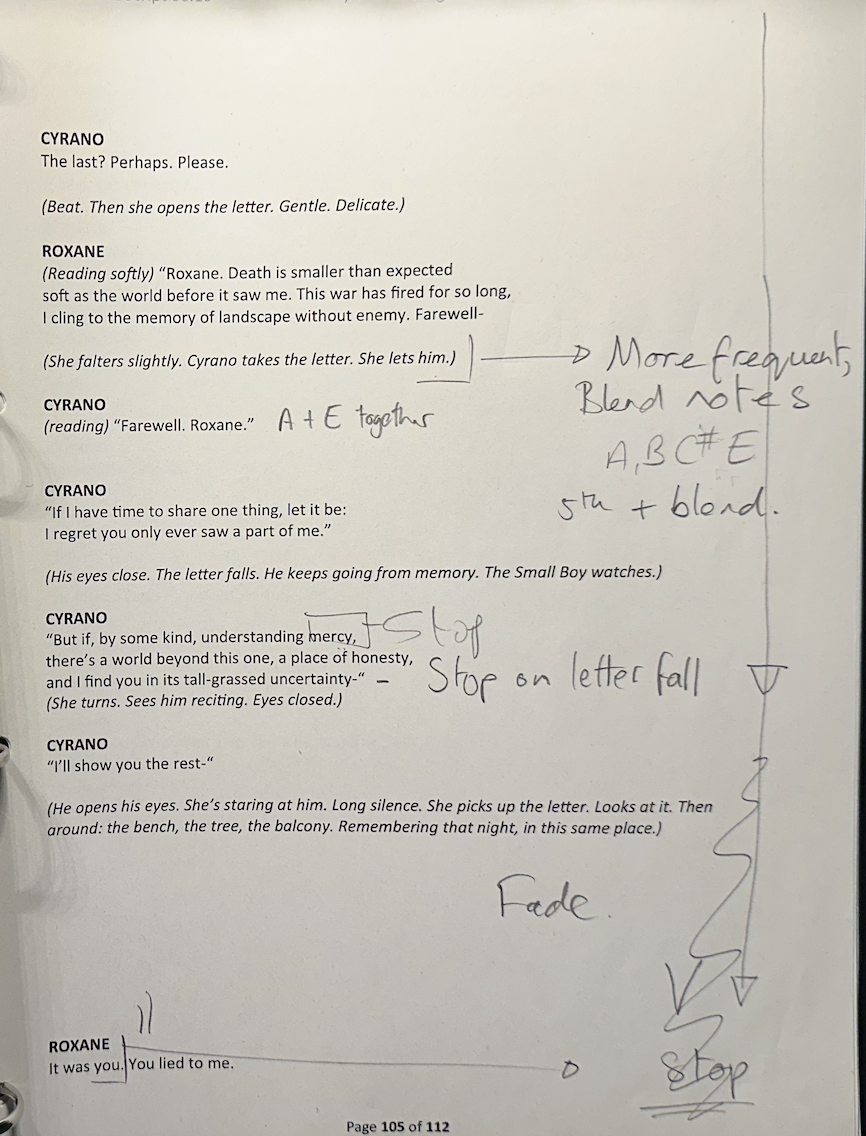 CYRANO
The last? Perhaps. Please.
(Beat. Then she opens the letter. Gentle. Delicate.)
ROXANE
(Reading softly) “Roxane. Death is smaller than expected
soft as the world before it saw me. This war has fired for so long,
I cling to the memory of landscape without enemy. Farewell-
(She falters slightly. Cyrano takes the letter. She lets him.)
More frequent,
Blend notes
A, B C# E
5th + blend.
CYRANO
(reading) “Farewell. Roxane.” A + E together
CYRANO
“If I have time to share one thing, let it be:
I regret you only ever saw a part of me.”
(His eyes close. The letter falls. He keeps going from memory. The Small Boy watches.)
CYRANO
“But if, by some kind, understanding mercy, Stop
there’s a world beyond this one, a place of honesty,
and I find you in its tall-grassed uncertainty-“ – Stop on letter fall
(She turns. Sees him reciting. Eyes closed.)
CYRANO
“I’ll show you the rest-“
(He opens his eyes. She’s staring at him. Long silence. She picks up the letter. Looks at it. Then
around: the bench, the tree, the balcony. Remembering that night, in this same place.)
Fade.
ROXANE
It was you. You lied to me. Stop
Page 105 of 112